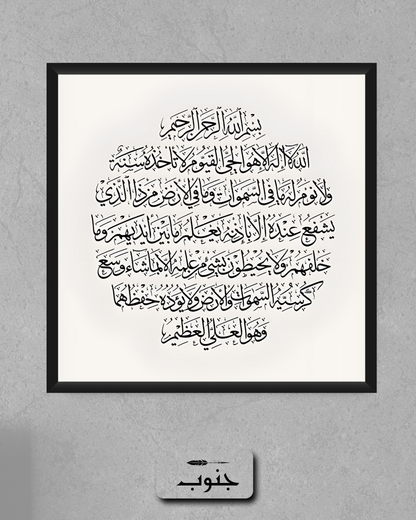 بِسْمِ اللَّهِ الرَّحْمَنِ الرَّحِيمِ
اللَّهُ لَا إِلَهَ إِلَّا هُوَ الْحَيُّ الْقَيُّومُ لَا تَأْخُذُهُ سِنَةٌ
وَلَا نَوْمٌ لَهُ مَا فِي السَّمَوَاتِ وَمَا فِي الْأَرْضِ مَنْ ذَا الَّذِي
يَشْفَعُ عِنْدَهُ إِلَّا بِإِذْنِهِ يَعْلَمُ مَا بَيْنَ أَيْدِيهِمْ وَمَا
خَلْفَهُمْ وَلَا يُحِيطُونَ بِشَيْءٍ مِنْ عِلْمِهِ إِلَّا بِمَا شَاءَ وَسِعَ
كُرْسِيُّهُ السَّمَوَاتِ وَالْأَرْضَ وَلَا يَئُودُهُ حِفْظُهُمَا
وَهُوَ الْعَلِيُّ الْعَظِيمُ
جنوب